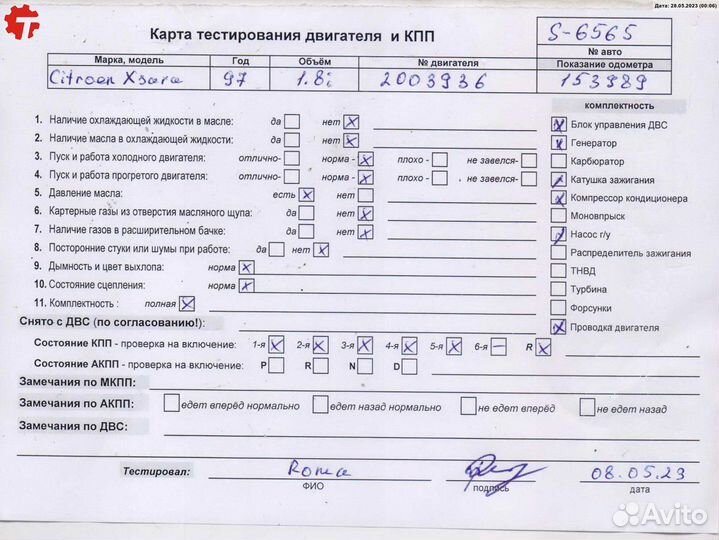 Дата: 28.05.2023 (00:06)
Карта тестирования двигателя и КПП
S-6565
№ авто
Марка, модель Год Объём № двигателя Показание одометра
Citroen Xsara 97 1.8i 2003936 153989
комплектность
1. Наличие охлаждающей жидкости в масле: да нет X
Блок управления ДВС
2. Наличие масла в охлаждающей жидкости: да нет X
Генератор
3. Пуск и работа холодного двигателя: отлично- норма - X плохо - не завелся-
Карбюратор
4. Пуск и работа прогретого двигателя: отлично- норма - X плохо - не завелся-
Катушка зажигания
5. Давление масла: есть X нет
Компрессор кондиционера
6. Картерные газы из отверстия масляного щупа: да нет X
Моновпрыск
7. Наличие газов в расширительном бачке: да нет X
Насос г/у
8. Посторонние стуки или шумы при работе: да нет X
Распределитель зажигания
9. Дымность и цвет выхлопа: норма X
ТНВД
10. Состояние сцепления: норма X
Турбина
11. Комплектность : полная X
Форсунки
Снято с ДВС (по согласованию!):
Проводка двигателя
Состояние КПП - проверка на включение: 1-я X 2-я X 3-я X 4-я X 5-я X 6-я — R X
Состояние АКПП - проверка на включение: P R N D
Замечания по МКПП:
Замечания по АКПП: едет вперёд нормально едет назад нормально не едет вперёд не едет назад
Замечания по ДВС:
Тестировал: Roma 08.05.23
ФИО подпись дата
Avito